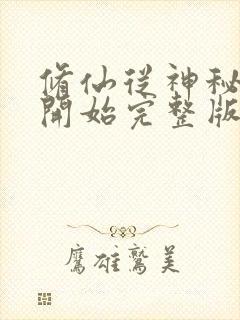 脩仙從神秘
開始完整版
鷹雄鷲美